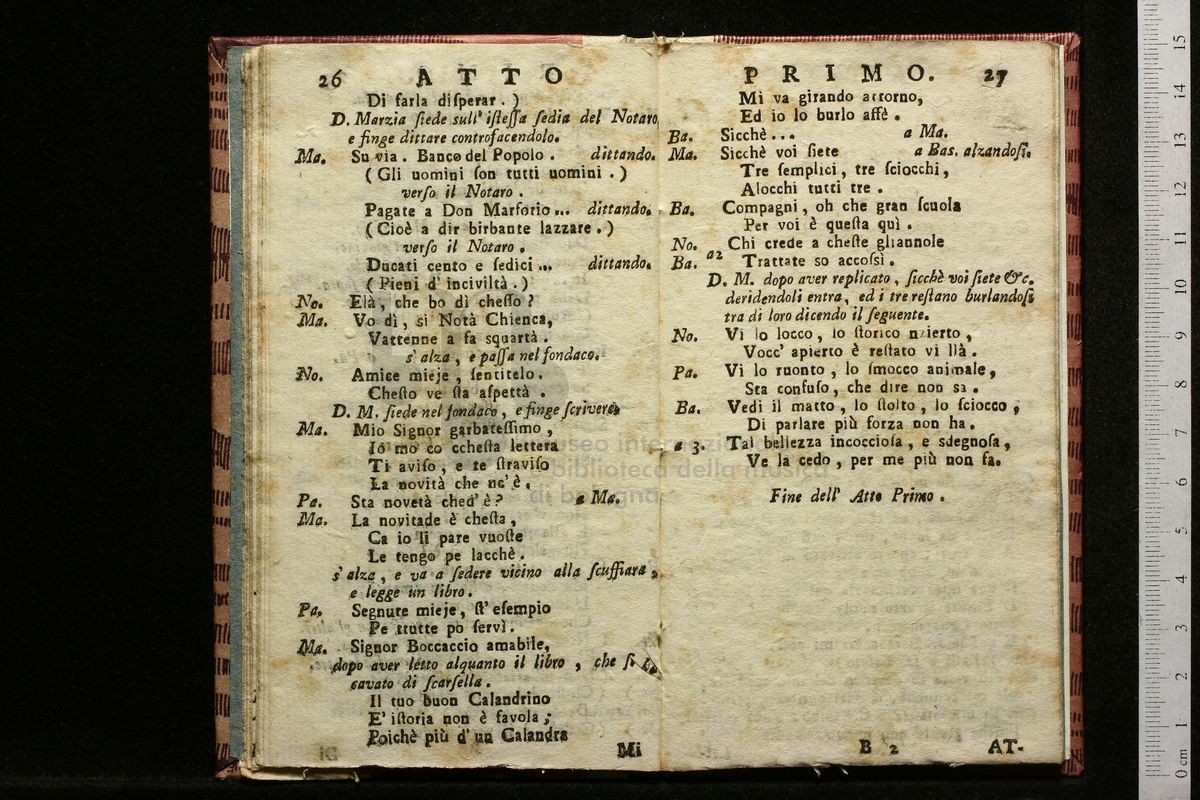 26 ATTO
Di farla disperar. )
D. Marzia siede sull' istessa sedia del Notaro
e finge dittare controfacendolo.
Ma. Su via. Banco del Popolo. dittando.
( Gli uomini son tutti uomini. )
verso il Notaro.
Pagate a Don Marforio... dittando.
( Cioè a dir birbante lazzare. )
verso il Notaro.
Ducati cento e sedici... dittando.
( Pieni d' inciviltà. )
No. Elà, che bo dì chesso?
Ma. Vo dì, si Notà Chienca,
Vattenne a fa squartà.
s' alza, e passa nel fondaco.
No. Amice mieje, sentitelo.
Chesto ve sta aspettà.
D. M. siede nel fondaco, e finge scrivere
Ma. Mio Signor garbatessimo,
Io mo co cchesta lettera
Ti aviso, e te straviso
La novità che nc' è.
Pa. Sta novetà ched' è? a Ma.
Ma. La novitade è chesta,
Ca io li pare vuoste
Le tengo pe lacchè.
s' alza, e va a sedere vicino alla scuffiara,
e legge un libro.
Pa. Segnure mieje, st' esempio
Pe ttutte po servì.
Ma. Signor Boccaccio amabile,
dopo aver letto alquanto il libro, che si
cavato di scarsella.
Il tuo buon Calandrino
E' istoria non è favola;
Poichè più d' un Calandra
Mi
PRIMO. 27
Mi va girando attorno,
Ed io lo burlo affè.
Ba. Sicchè... a Ma.
Ma. Sicchè voi siete a Bas. alzandosi.
Tre semplici, tre sciocchi,
Alocchi tutti tre.
Ba. Compagni, oh che gran scuola
Per voi è questa quì.
No. Chi crede a cheste gliannole
Ba. a2 Trattate so accossì.
D. M. dopo aver replicato, sicchè voi siete &c.
deridendoli entra, ed i tre restano burlandosi
tra di loro dicendo il seguente.
No. Vi lo locco, lo storico nzierto,
Vocc' apierto è restato vi llà.
Pa. Vi lo ruonto, lo smocco animale,
Sta confuso, che dire non sa.
Ba. Vedi il matto, lo stolto, lo sciocco,
Di parlare più forza non ha.
a 3. Tal bellezza incocciosa, e sdegnosa,
Ve la cedo, per me più non fa.
Fine dell' Atto Primo.
B 2 AT-